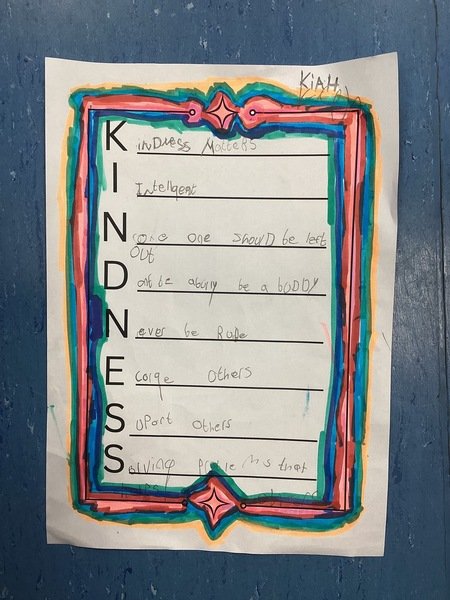 KiAH
KinDness Matters
I Intellgent
N one should be left
OUT
Dont be abully be a buDDY
Never be RuDe
E Others
SuPort Others
Solving Proble ms that